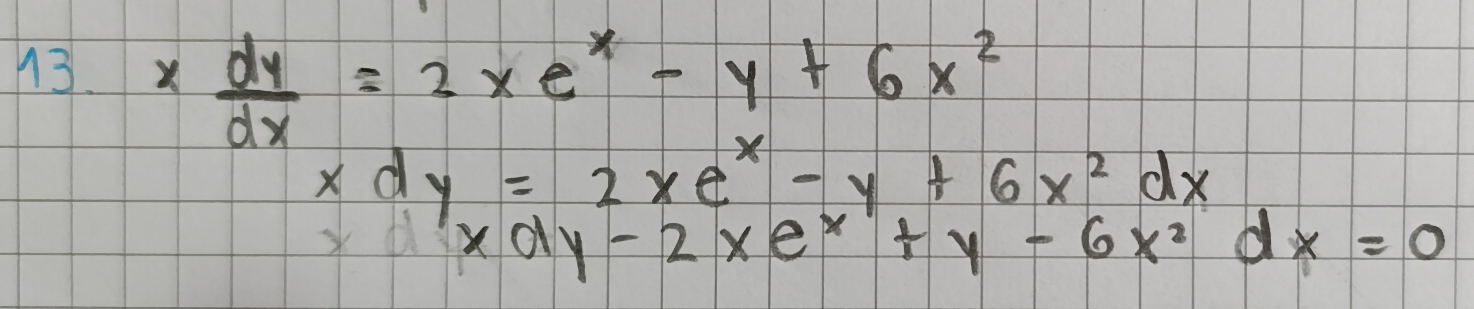 13. x dy/dx = 2xe^x - y + 6x^2
x dy = 2xe^x - y + 6x^2 dx
x dy - 2xe^x + y - 6x^2 dx = 0